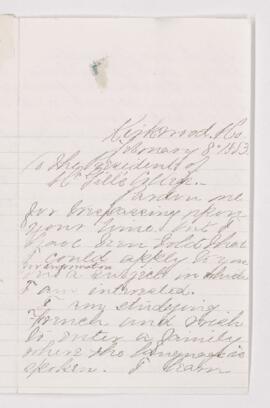 Kirkwood, Mo
February 8th 1883.
To the President of
McGill College.
Pardon me
for trespassing upon
your time but I
have been told that
I could apply to you
for information
in a subject in which
I am interested.
I am studying
French and wish
to enter a family
where the language is
spoken. I learn